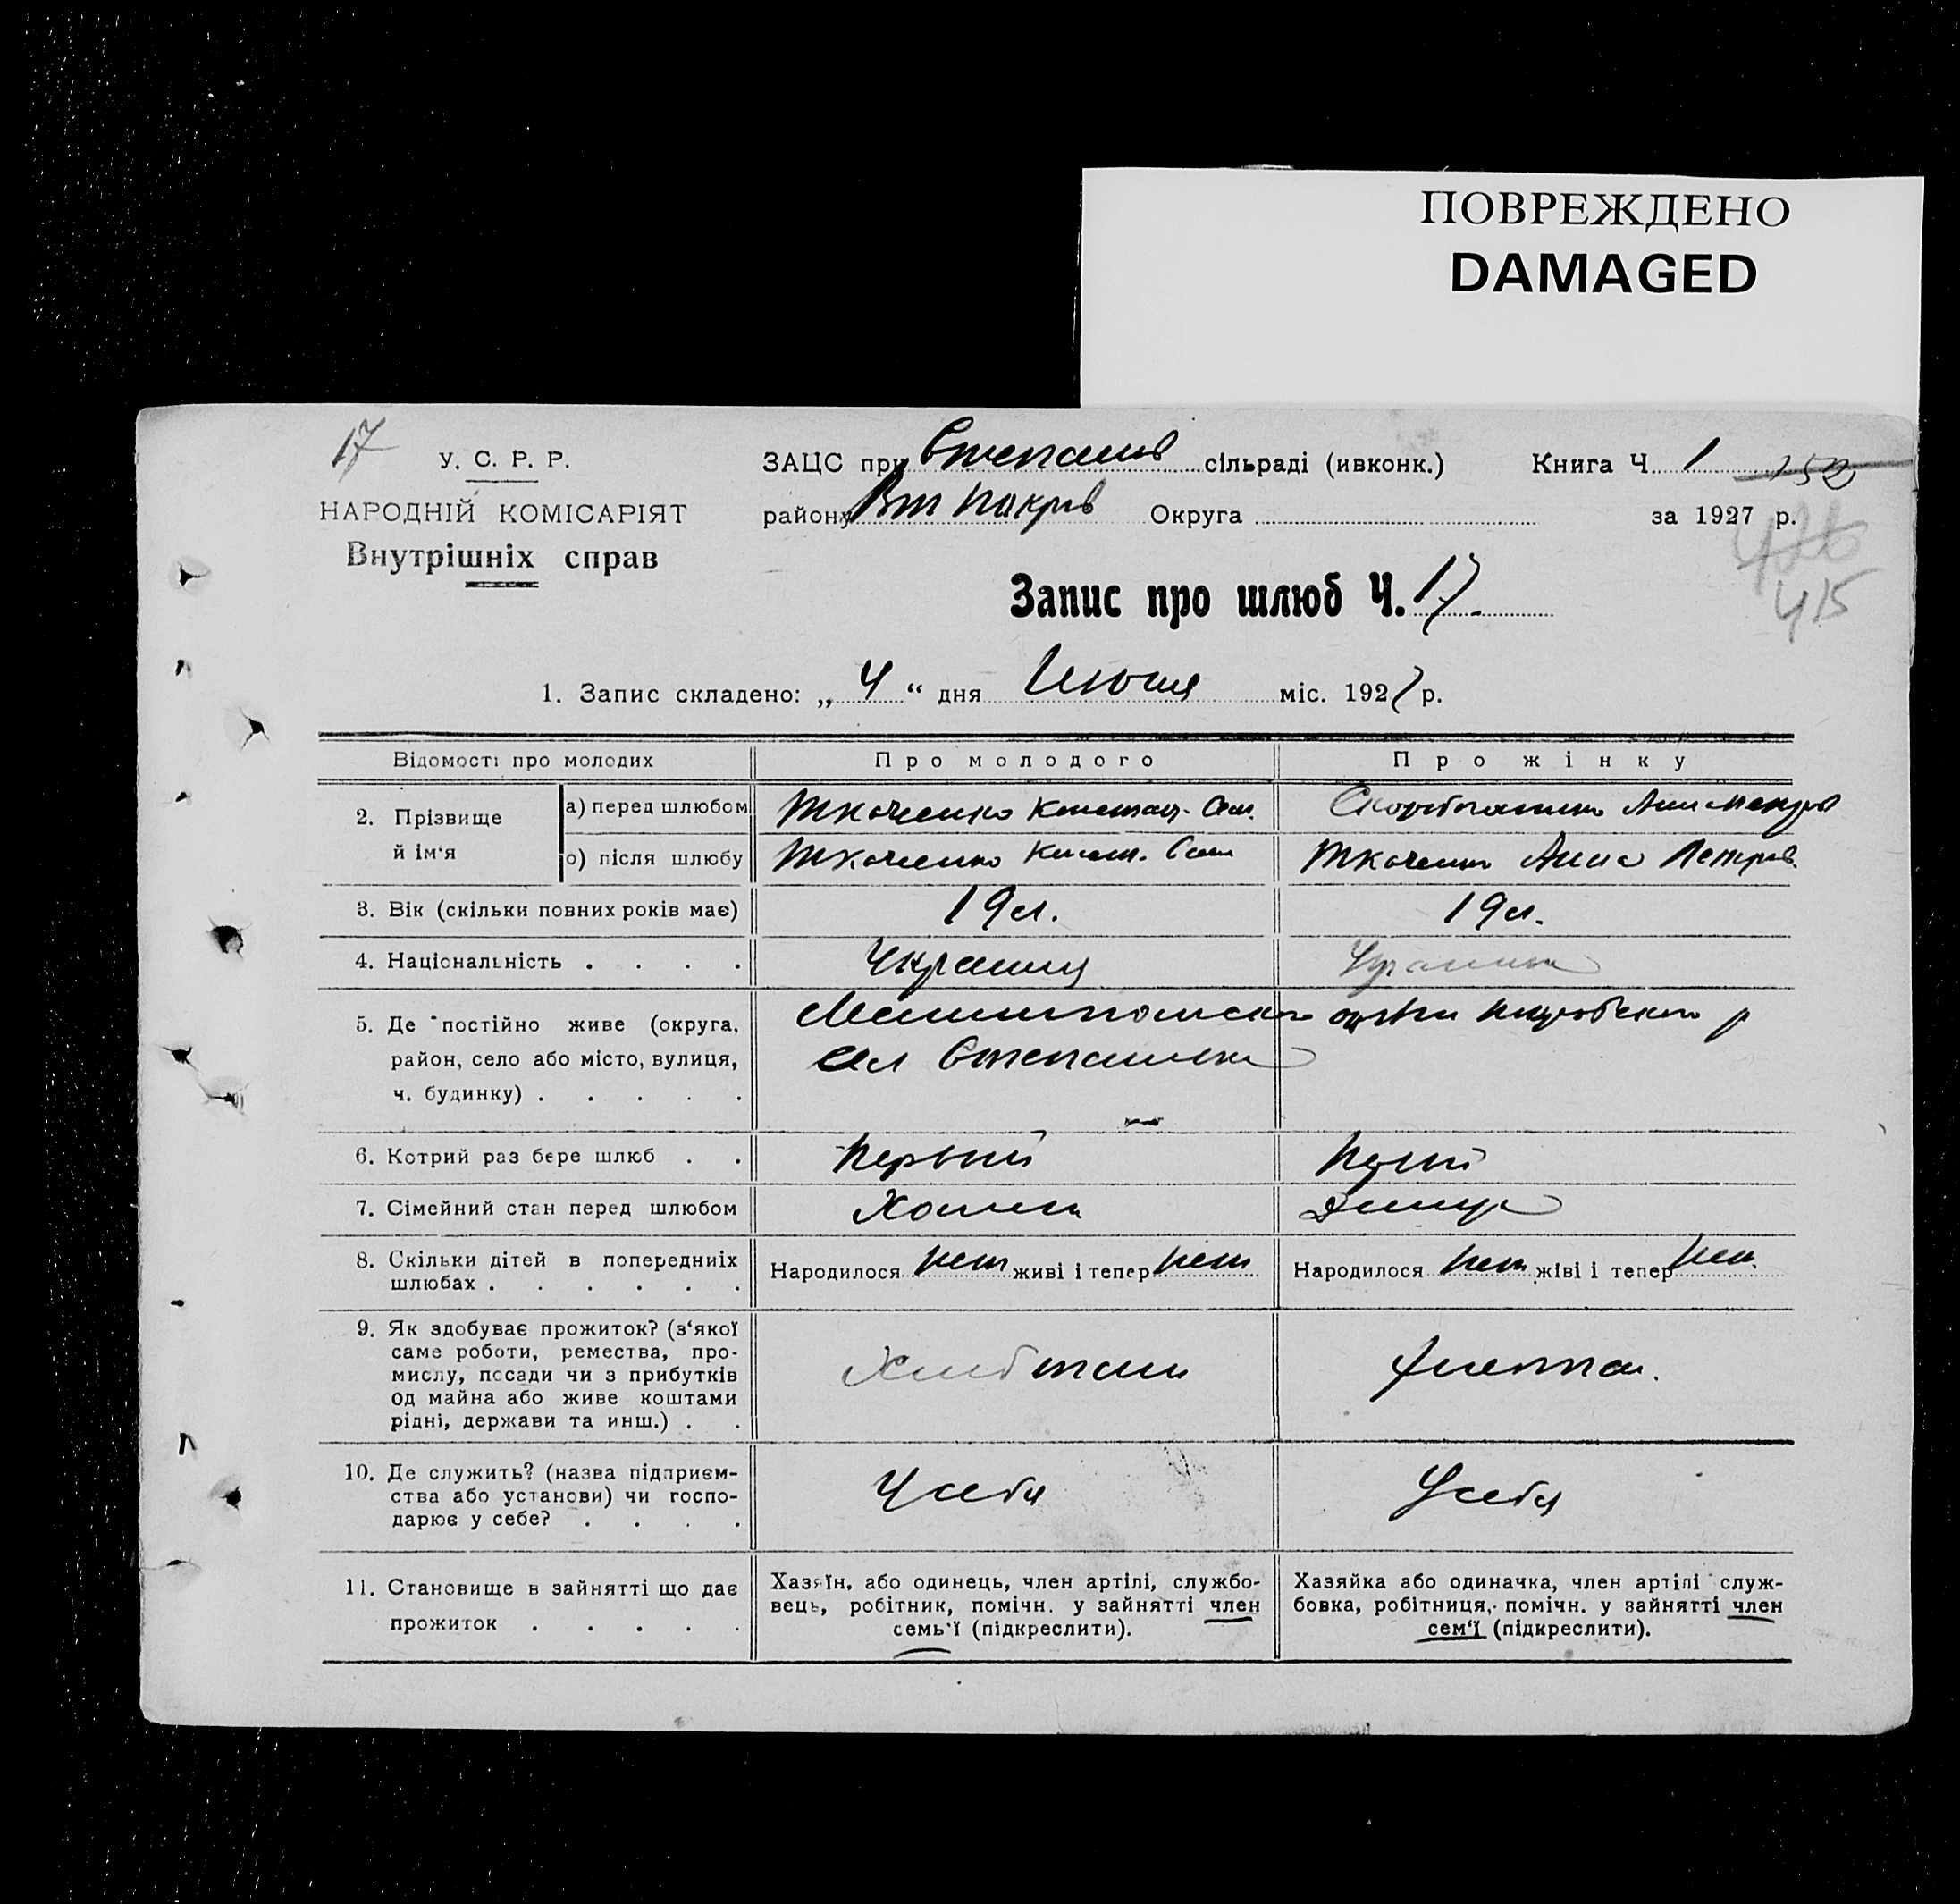 ПОВРЕЖДЕНО
DAMAGED
17
У. С. Р. Р.
НАРОДНІЙ КОМІСАРІЯТ
Внутрішніх справ
ЗАЦС при Степанів сільраді (ивконк.)
Книга Ч. 1 152
району Округа
за 1927 р.
426
415
Запис про шлюб Ч. 17.
1. Запис складено: „ 4 “ дня міс. 1927 р.
Відомості про молодих
Про молодого
Про жінку
2. Прізвище й ім‘я
а) перед шлюбом
Ткаченко
Анна
о) після шлюбу
Ткаченко
Ткаченко Анна Петров.
3. Вік (скільки повних років має)
19 л.
19 л.
4. Національність . . . .
Украинц
5. Де постійно живе (округа,
район, село або місто, вулиця,
ч. будинку) . . . . .
Сел Степановка
6. Котрий раз бере шлюб . .
Первый
7. Сімейний стан перед шлюбом
Холост
8. Скільки дітей в попередниіх
шлюбах . . . . . .
Народилося нет живі і тепер нет
Народилося нет живі і тепер нет.
9. Як здобуває прожиток? (з‘якої
саме роботи, ремества, про-
мислу, посади чи з прибутків
од майна або живе коштами
рідні, держави та инш.) . .
10. Де служить? (назва підприєм-
ства або установи) чи госпо-
дарює у себе? . . . .
У себя
У себя
11. Становище в зайнятті що дає
прожиток . . . . .
Хазяїн, або одинець, член артілі, службо-
вець, робітник, помічн. у зайнятті член
семь‘ї (підкреслити).
Хазяйка або одиначка, член артілі служ-
бовка, робітниця, помічн. у зайнятті член
сем‘ї (підкреслити).